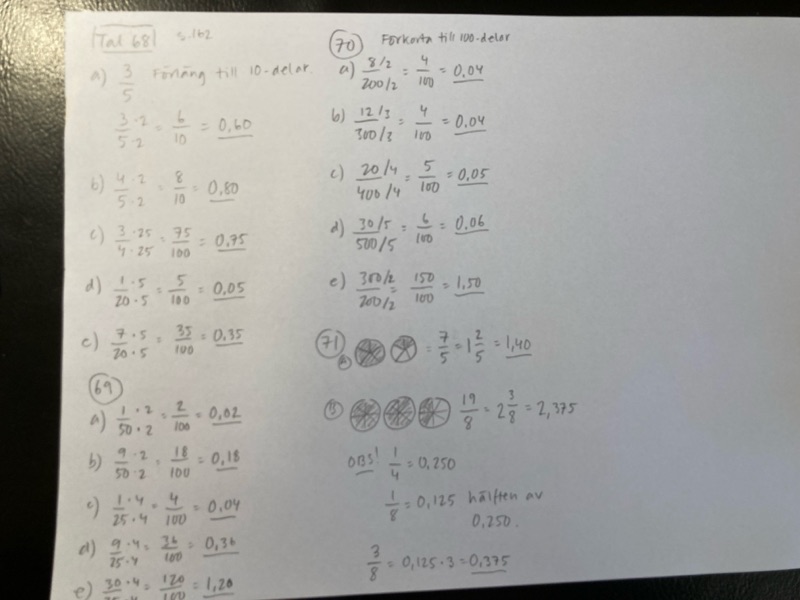 Tal 68 s.162
a) 3/5 Förläng till 10-delar.
3·2/5·2 = 6/10 = 0,60
b) 4·2/5·2 = 8/10 = 0,80
c) 3·25/4·25 = 75/100 = 0,75
d) 1·5/20·5 = 5/100 = 0,05
e) 7·5/20·5 = 35/100 = 0,35
69
a) 1·2/50·2 = 2/100 = 0,02
b) 9·2/50·2 = 18/100 = 0,18
c) 1·4/25·4 = 4/100 = 0,04
d) 9·4/25·4 = 36/100 = 0,36
e) 30·4/25·4 = 120/100 = 1,20
70 Förkorta till 100-delar
a) 8/2/200/2 = 4/100 = 0,04
b) 12/3/300/3 = 4/100 = 0,04
c) 20/4/400/4 = 5/100 = 0,05
d) 30/5/500/5 = 6/100 = 0,06
e) 300/2/200/2 = 150/100 = 1,50
71
A = 7/5 = 1 2/5 = 1,40
B 19/8 = 2 3/8 = 2,375
OBS! 1/4 = 0,250
1/8 = 0,125 hälften av
0,250.
3/8 = 0,125·3 = 0,375